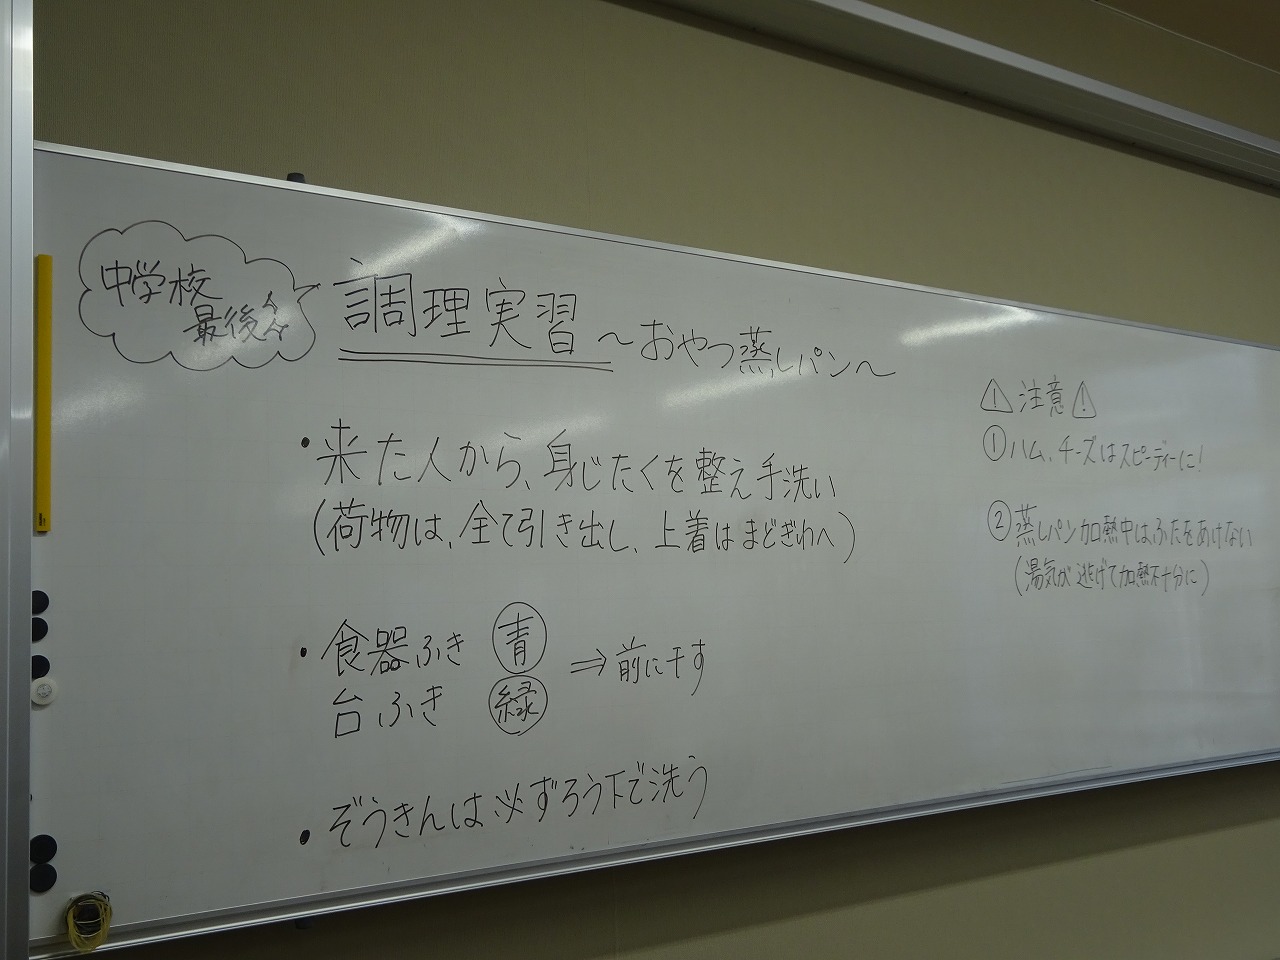 中学校
最後
調理実習 ～おやつ蒸しパン～
・来た人から、身じたくを整え手洗い
(荷物は、全て引き出し、上着はまどぎわへ)
・食器ふき 青
台ふき 緑
⇒前に干す
・ぞうきんは必ずろう下で洗う
⚠注意⚠
①ハム、チーズはスピーディーに!
②蒸しパン加熱中はふたをあけない
(湯気が逃げて加熱不十分に)